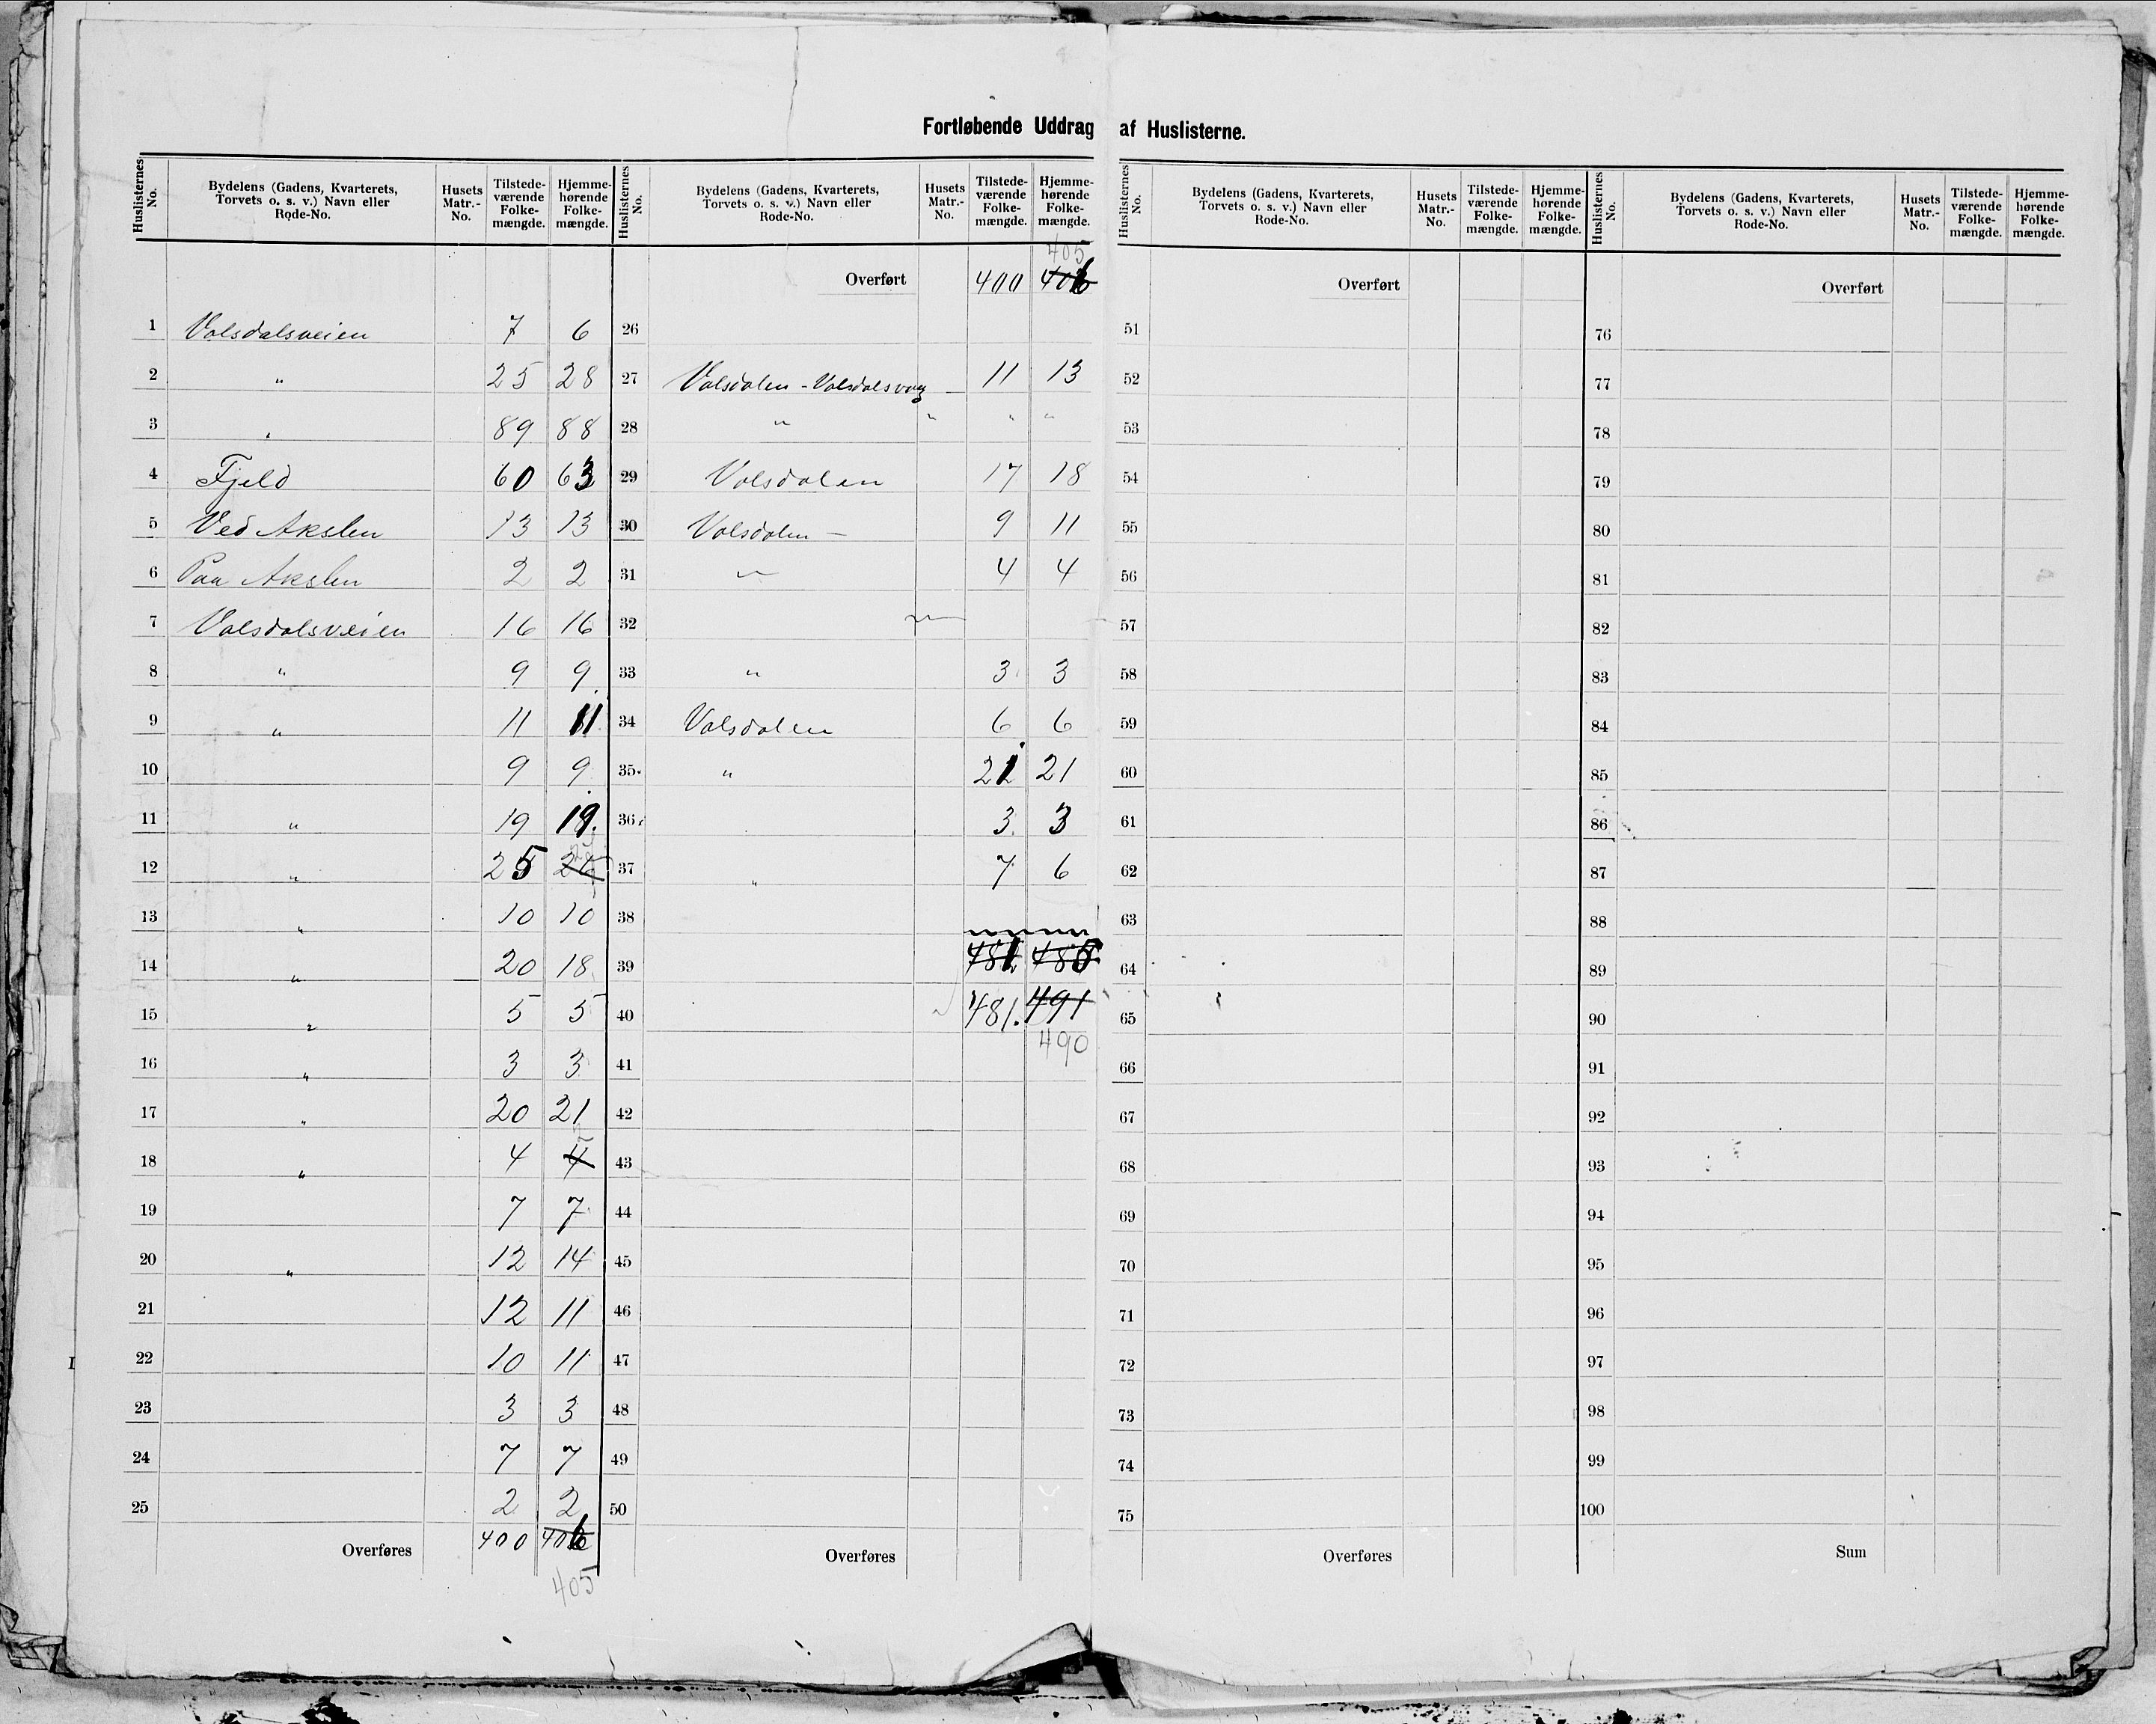 Fortløbende Uddrag af Huslisterne.
Huslisternes No. | Bydelens (Gadens, Kvarterets, Torvets o. s. v.) Navn eller Rode-No. | Husets Matr.-No. | Tilstedeværende Folkemængde. | Hjemmehørende Folkemængde.
1 Volsdalsveien 7 6
2 " 25 28
3 " 89 88
4 Fjeld 60 63
5 Ved Akslen 13 13
6 Paa Akslen 2 2
7 Volsdalsveien 16 16
8 " 9 9
9 " 11 11
10 9 9
11 " 19 19.
12 " 25
13 " 10 10
14 " 20 18
15 " 5 5
16 " 3 3
17 " 20 21
18 " 4 4
19 7 7
20 " 12 14
21 12 11
22 10 11
23 3 3
24 7 7
25 2 2
Overføres 400 406
405
Huslisternes No. | Bydelens (Gadens, Kvarterets, Torvets o. s. v.) Navn eller Rode-No. | Husets Matr.-No. | Tilstedeværende Folkemængde. | Hjemmehørende Folkemængde.
405
Overført 400 406
26
27 Volsdalen - Volsdalsvaag 11 13
28 " " " "
29 Volsdalen 17 18
30 Volsdalen - 9 11
31 " 4 4
32
33 " 3 3
34 Volsdalen 6 6
35 " 21 21
36 3 3
37 " 7 6
38
39 481 485
40 481. 491
490
41
42
43
44
45
46
47
48
49
50
Overføres
Huslisternes No. | Bydelens (Gadens, Kvarterets, Torvets o. s. v.) Navn eller Rode-No. | Husets Matr.-No. | Tilstedeværende Folkemængde. | Hjemmehørende Folkemængde.
Overført
51
52
53
54
55
56
57
58
59
60
61
62
63
64
65
66
67
68
69
70
71
72
73
74
75
Overføres
Huslisternes No. | Bydelens (Gadens, Kvarterets, Torvets o. s. v.) Navn eller Rode-No. | Husets Matr.-No. | Tilstedeværende Folkemængde. | Hjemmehørende Folkemængde.
Overført
76
77
78
79
80
81
82
83
84
85
86
87
88
89
90
91
92
93
94
95
96
97
98
99
100
Sum